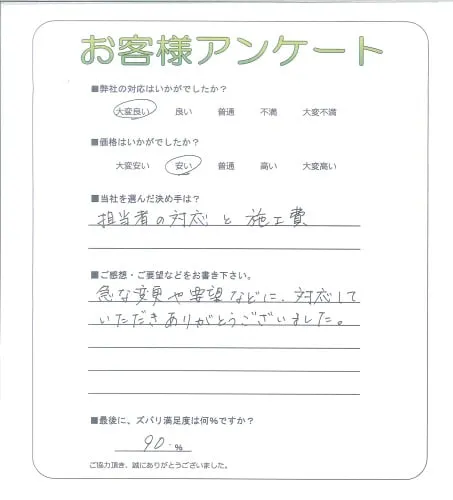 お客様アンケート
■弊社の対応はいかがでしたか？
大変良い 良い 普通 不満 大変不満
■価格はいかがでしたか？
大変安い 安い 普通 高い 大変高い
■当社を選んだ決め手は？
担当者の対応と施工費
■ご感想・ご要望などをお書き下さい。
急な変更や要望などに、対応して
いただきありがとうございました。
■最後に、ズバリ満足度は何%ですか？
90.%
ご協力頂き、誠にありがとうございました。